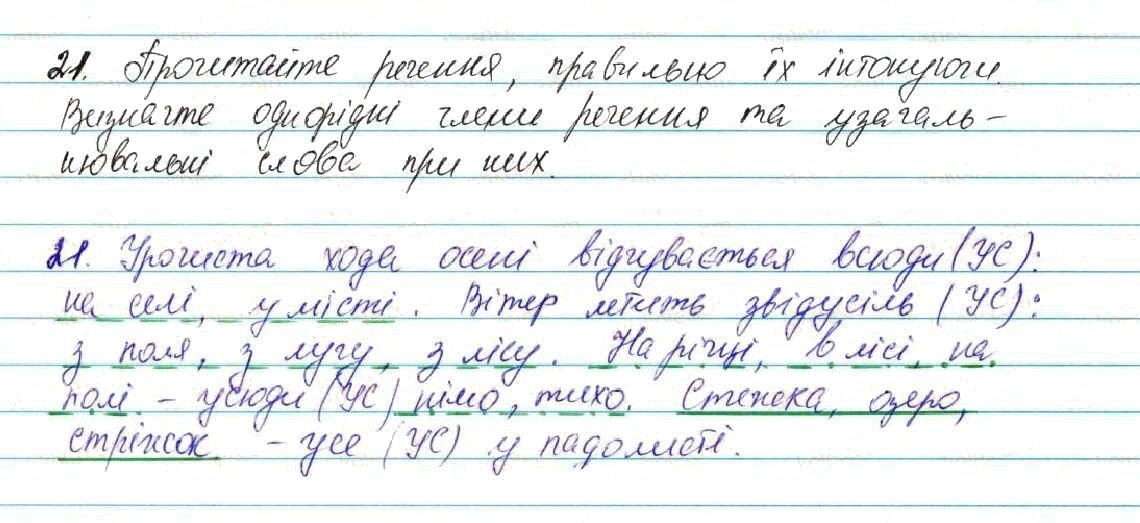 21. Прочитайте речення, правильно їх інтонуючи.
Визначте однорідні члени речення та узагаль-
нювальні слова при них.
21. Урочиста хода осені відчувається всюди (УС):
на селі, у місті. Вітер летить звідусіль (УС):
з поля, з лугу, з лісу. На річці, в лісі, на
полі - усюди (УС) німо, тихо. Стежка, озеро,
стріжок - усе (УС) у падолисті.